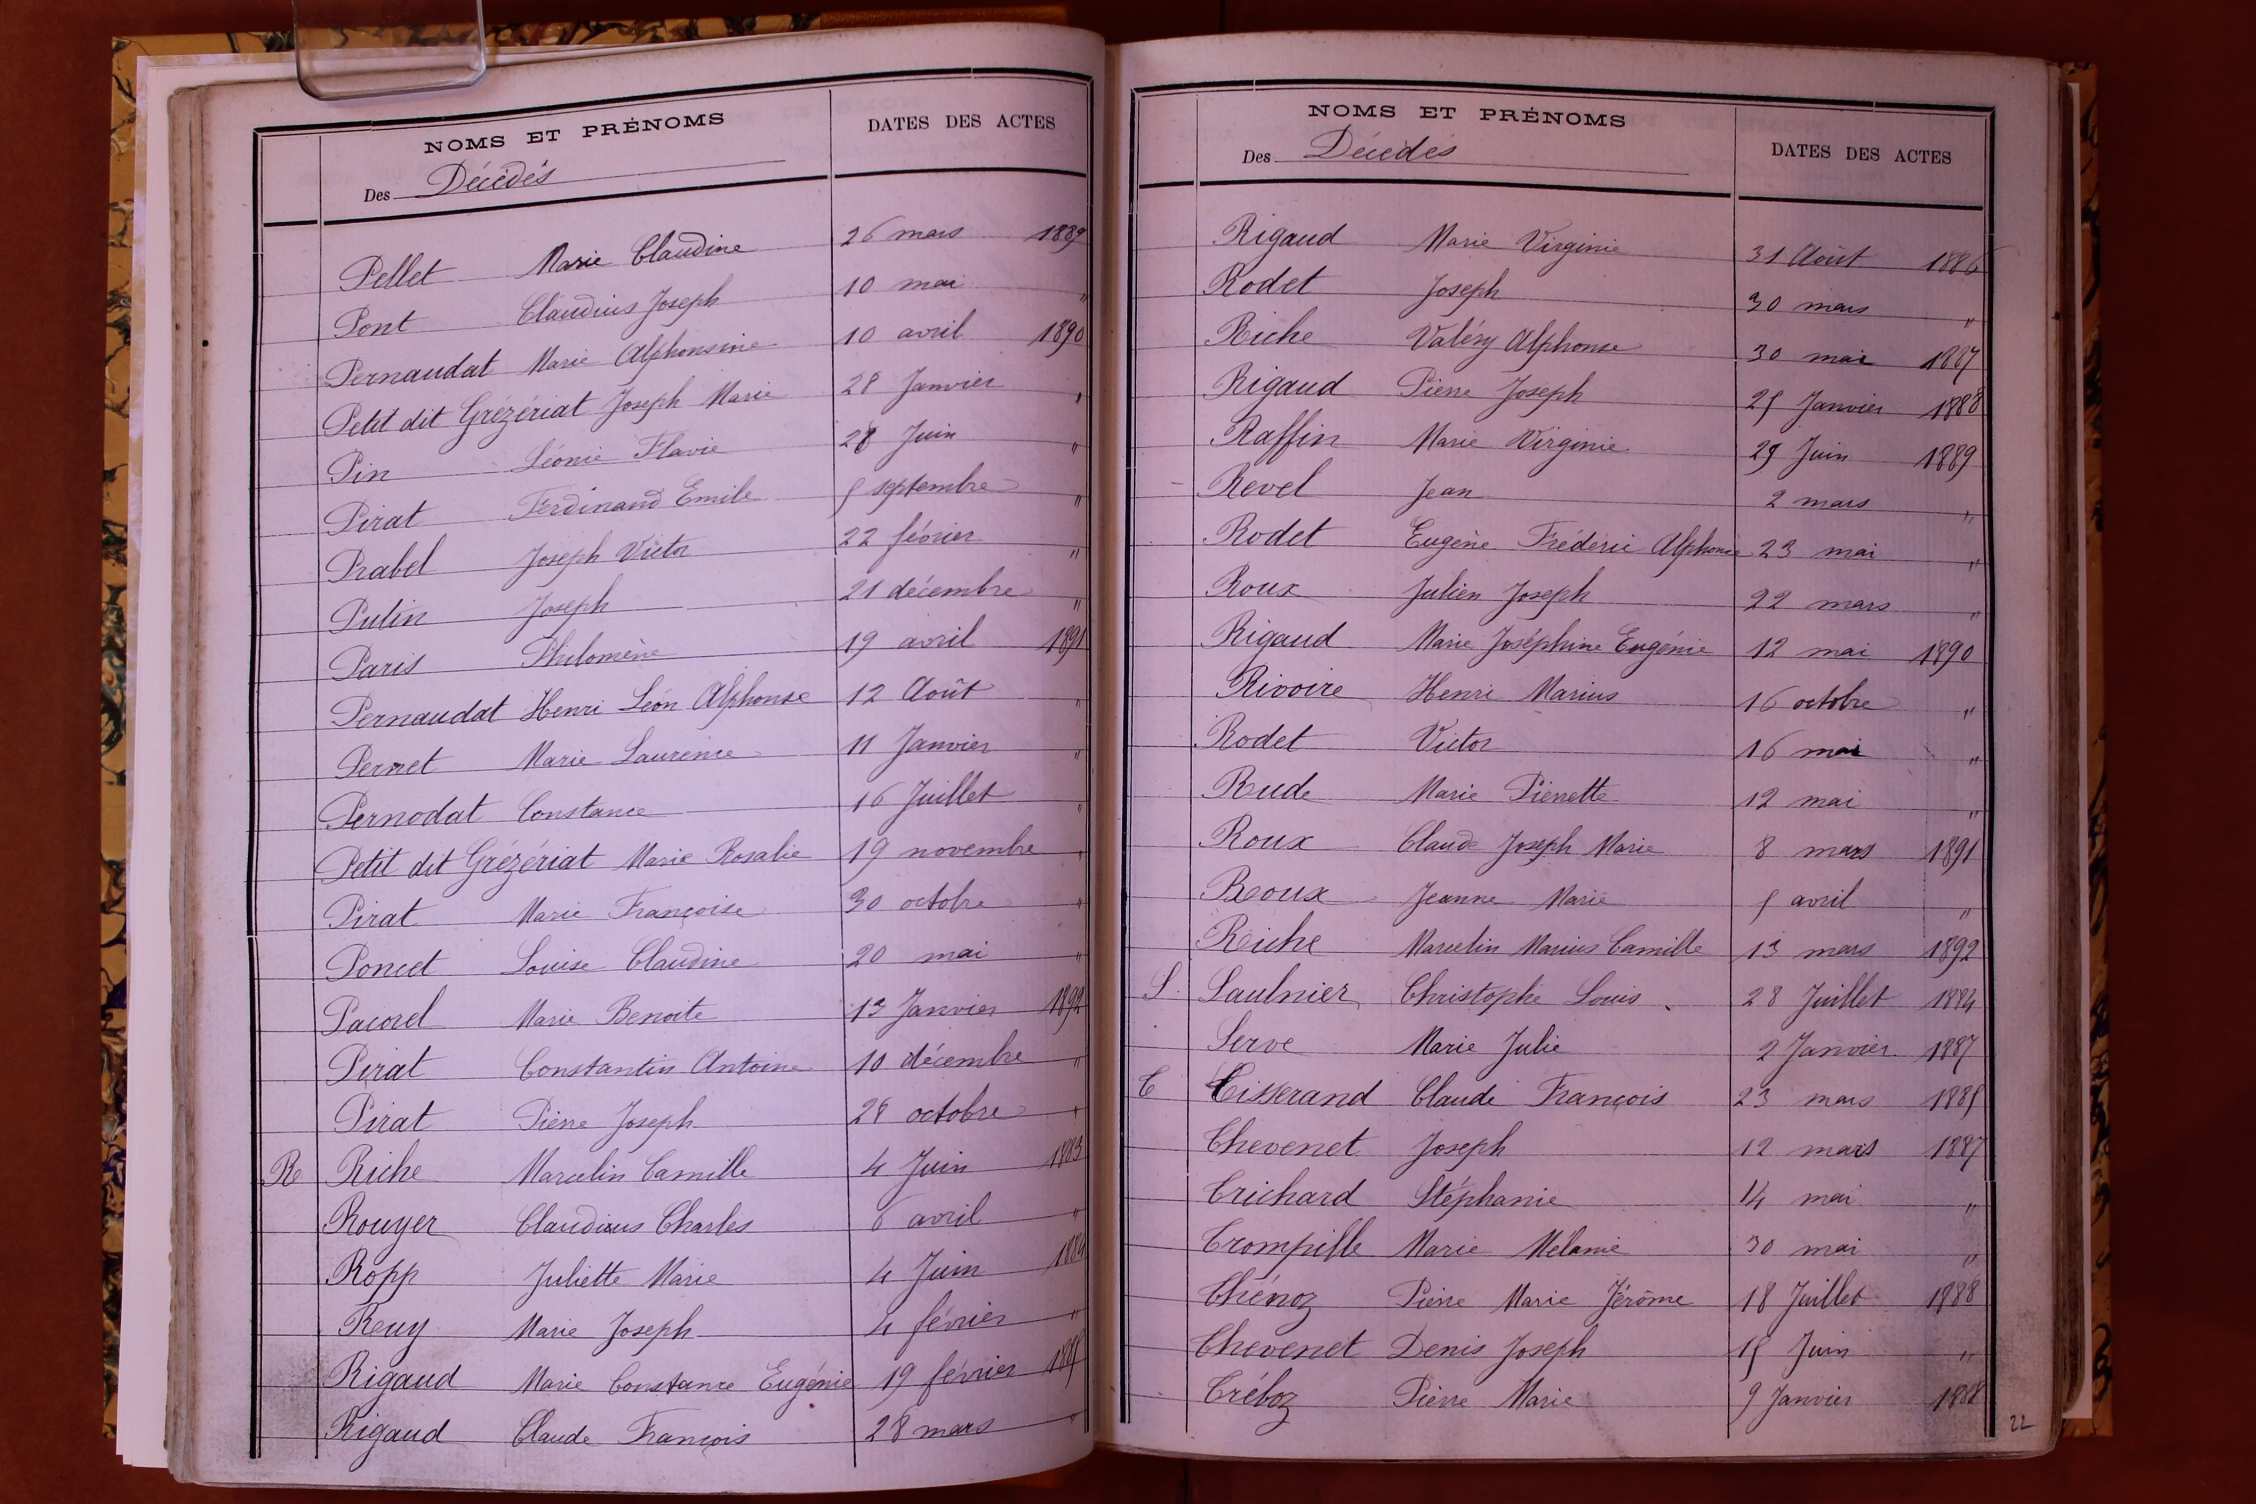 NOMS ET PRÉNOMS DATES DES ACTES
Des Décédés
Pellet Marie Claudine 26 mars 1889
Pont Claudius Joseph 10 mai "
Pernaudat Marie Alphonsine 10 avril 1890
Petit dit Grézériat Joseph Marie 28 Janvier "
Pin Léonie Flavie 28 Juin "
Pirat Ferdinand Emile 5 septembre "
Prabel Joseph Victor 22 février "
Putin Joseph 21 décembre "
Paris Philomène 19 avril 1891
Pernaudat Henri Léon Alphonse 12 Août "
Pernet Marie Laurence 11 Janvier "
Pernodat Constance 16 Juillet "
Petit dit Grézériat Marie Rosalie 19 novembre "
Pirat Marie Françoise 30 octobre "
Poncet Louise Claudine 20 mai "
Pacorel Marie Benoite 13 Janvier 1892
Pirat Constantin Antoine 10 décembre "
Pirat Pierre Joseph 28 octobre "
R Riche Marcelin Camille 4 Juin 1883
Rouyer Claudius Charles 6 avril "
Ropp Juliette Marie 4 Juin 1884
Reuy Marie Joseph 4 février "
Rigaud Marie Constance Eugénie 19 février 1885
Rigaud Claude François 28 mars "
NOMS ET PRÉNOMS DATES DES ACTES
Des Décédés
Rigaud Marie Virginie 31 Août 1886
Rodet Joseph 30 mars "
Riche Valéry Alphonse 30 mai 1887
Rigaud Pierre Joseph 25 Janvier 1888
Raffin Marie Virginie 29 Juin 1889
Revel Jean 2 mars "
Rodet Eugène Fréderic Alphonse 23 mai "
Roux Julien Joseph 22 mars "
Rigaud Marie Joséphine Eugénie 12 mai 1890
Rivoire Henri Marius 16 octobre "
Rodet Victor 16 mai "
Rude Marie Pierrette 12 mai "
Roux Claude Joseph Marie 8 mars 1891
Roux Jeanne Marie 5 avril "
Riche Marcelin Marius Camille 13 mars 1892
S. Saulnier Christophe Louis 28 Juillet 1884
Serve Marie Julie 2 Janvier 1887
T Tisserand Claude François 23 mars 1885
Thevenet Joseph 12 mars 1887
Trichard Stéphanie 14 mai "
Trompille Marie Mélanie 30 mai "
Thénoz Pierre Marie Jérôme 18 Juillet 1888
Thevenet Denis Joseph 15 Juin "
Tréboz Pierre Marie 9 Janvier 1888
22